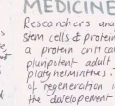 MEDICINE
Researchers and
stem cells & protein
a protein critical
pluripotent adult
platyhelminthes.
of regeneration i
the development